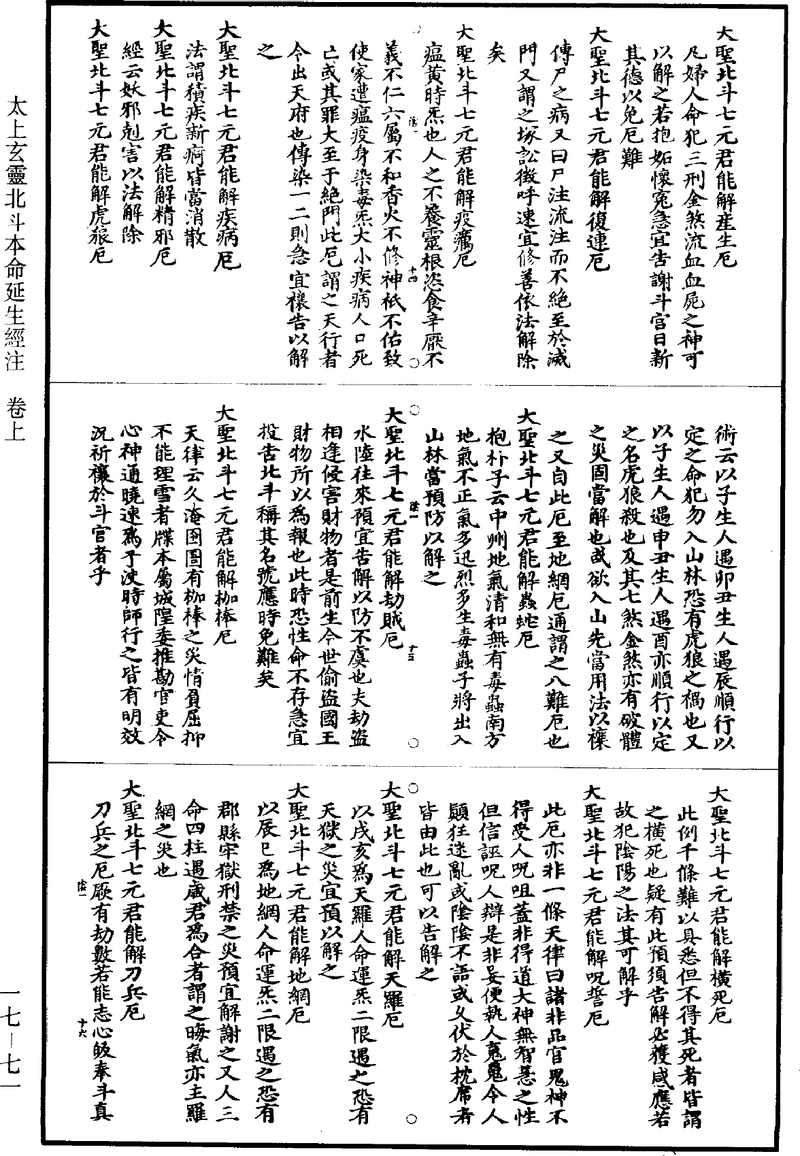 大聖北斗七元君能解產生厄
凡婦人命犯三刑金煞流血血屍之神可
以解之若抱妬懷寃急宜告謝斗宮日新
其德以免厄難
大聖北斗七元君能解復連厄
傳尸之病又曰尸注流注而不絕至於滅
門又謂之塚訟徵呼速宜修善依法解除
矣
大聖北斗七元君能解疫癘厄
瘟黃時炁也人之不養靈根恣食辛厭不
義不仁六屬不和香火不修神祇不佑致
使家遭瘟疫身染毒炁大小疾病人口死
亡或其罪大至于絕門此厄謂之天行者
令出天府也傳染一二則急宜禳告以解
之
大聖北斗七元君能解疾病厄
法謂積疾新痾皆當消散
大聖北斗七元君能解精邪厄
經云妖邪剋害以法解除
大聖北斗七元君能解虎狼厄
術云以子生人遇卯丑生人遇辰順行以
定之命犯勿入山林恐有虎狼之禍也又
以子生人遇申丑生人遇酉亦順行以定
之名虎狼殺也及其七煞金煞亦有破體
之災固當解也或欲入山先當用法以禳
之又自此厄至地網厄通謂之八難厄也
大聖北斗七元君能解蟲蛇厄
抱朴子云中州地氣清和無有毒蟲南方
地氣不正氣多迅烈多生毒蟲子將出入
山林當預防以解之
大聖北斗七元君能解劫賊厄
水陸往來預宜告解以防不虞也夫劫盜
相逢侵害財物者是前生今世偷盜國王
財物所以為報也此時恐性命不存急宜
投告北斗稱其名號應時免難矣
大聖北斗七元君能解枷棒厄
天律云久淹囹圄有枷棒之災情負屈抑
不能理雪者牒本屬城隍委推勘官吏令
心神通曉速為予決時師行之皆有明效
況祈禳於斗宮者乎
大聖北斗七元君能解橫死厄
此例千條難以具悉但不得其死者皆謂
之橫死也疑有此預須告解必獲感應若
故犯陰陽之法其可解乎
大聖北斗七元君能解呪誓厄
此厄亦非一條天律曰諸非品官鬼神不
得受人呪咀蓋非得道大神無智慧之性
但信誣呪人辯是非妄便執人冤鬼令人
顛狂迷亂或陰陰不語或久伏於枕席者
皆由此也可以告解之
大聖北斗七元君能解天羅厄
以戌亥為天羅人命運炁二限遇之恐有
天獄之災宜預以解之
大聖北斗七元君能解地網厄
以辰巳為地網人命運炁二限遇之恐有
郡縣牢獄刑禁之災預宜解謝之又人三
命四柱遇歲君為合者謂之晦氣亦主羅
網之災也
大聖北斗七元君能解刀兵厄
刀兵之厄厥有劫數若能志心皈奉斗真
太上玄靈北斗本命延生經注 卷上
一七—七一